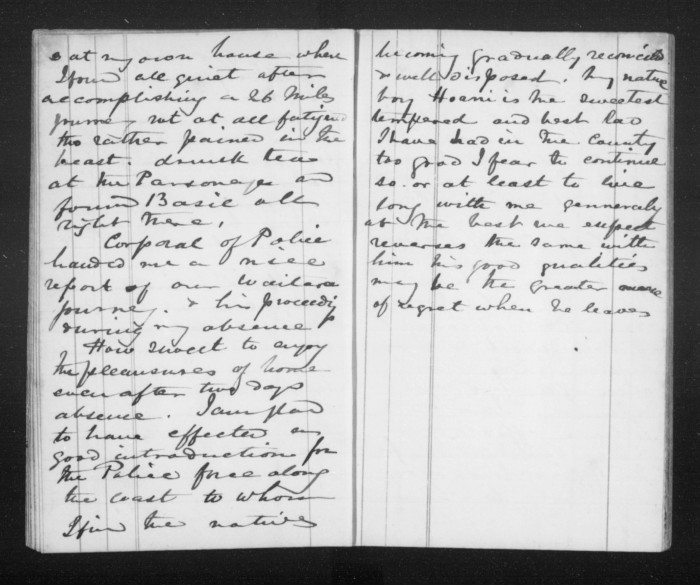 & at my own house where
I found all quiet after
accomplishing a 26 Miles
journey not at all fatigued
tho rather pained in the
breast. drunk tea
at the Parsonage and
found Basil all
right there,
Corporal of Police
handed me a nice
report of our Waitara
journey. & his proceedings
during my absence
How sweet to enjoy
the pleasures of home
even after two days
absence. I am glad
to have effected so
good introduction for
the Police force along
the coast to whom
I find the natives
becoming gradually reconciled
& well disposed. My native
boy Hoani is the sweetest
tempered and best lad
I have had in the County
too good I fear to continue
so. or at least to live
long with me generally
at the best we expect
reverses the same with
him his good qualities
may be the greater cause
of regret when he leaves